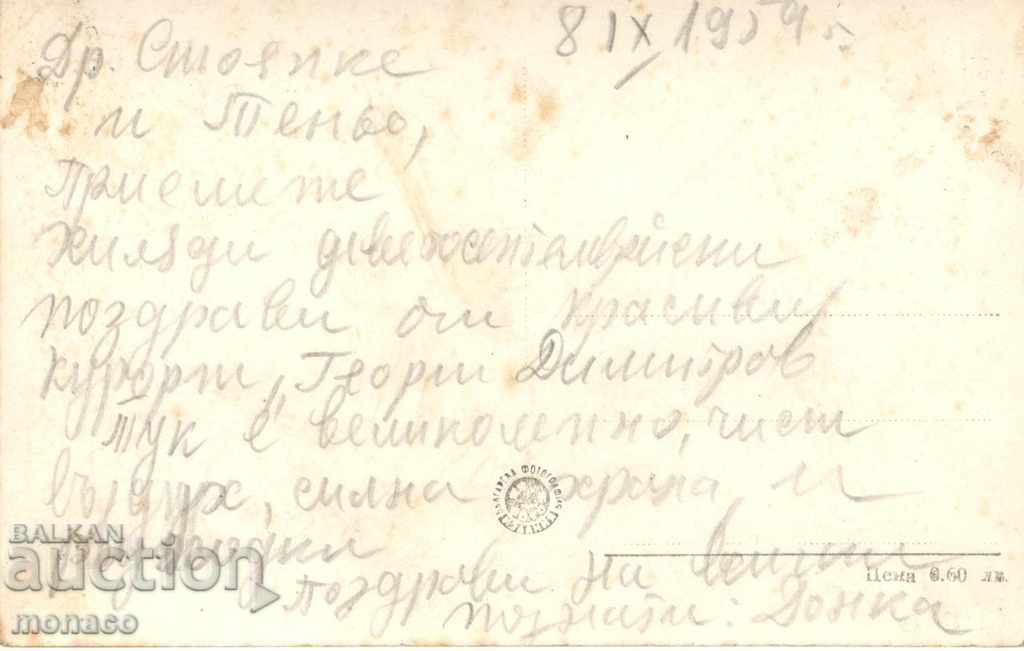 8 IX 1959 г.
Др. Стоянке
и Теньо,
Приемете
хиляди деветосептемврийски
поздрави от красивия
курорт „Георги Димитров
Тук е великолепно, чист
въздух, силна храна и
Поздрави на всички
познати: Донка
БЪЛГАРСКА ФОТОГРАФИЯ
Цена 0.60 лв.
BALKAN
auction
monaco